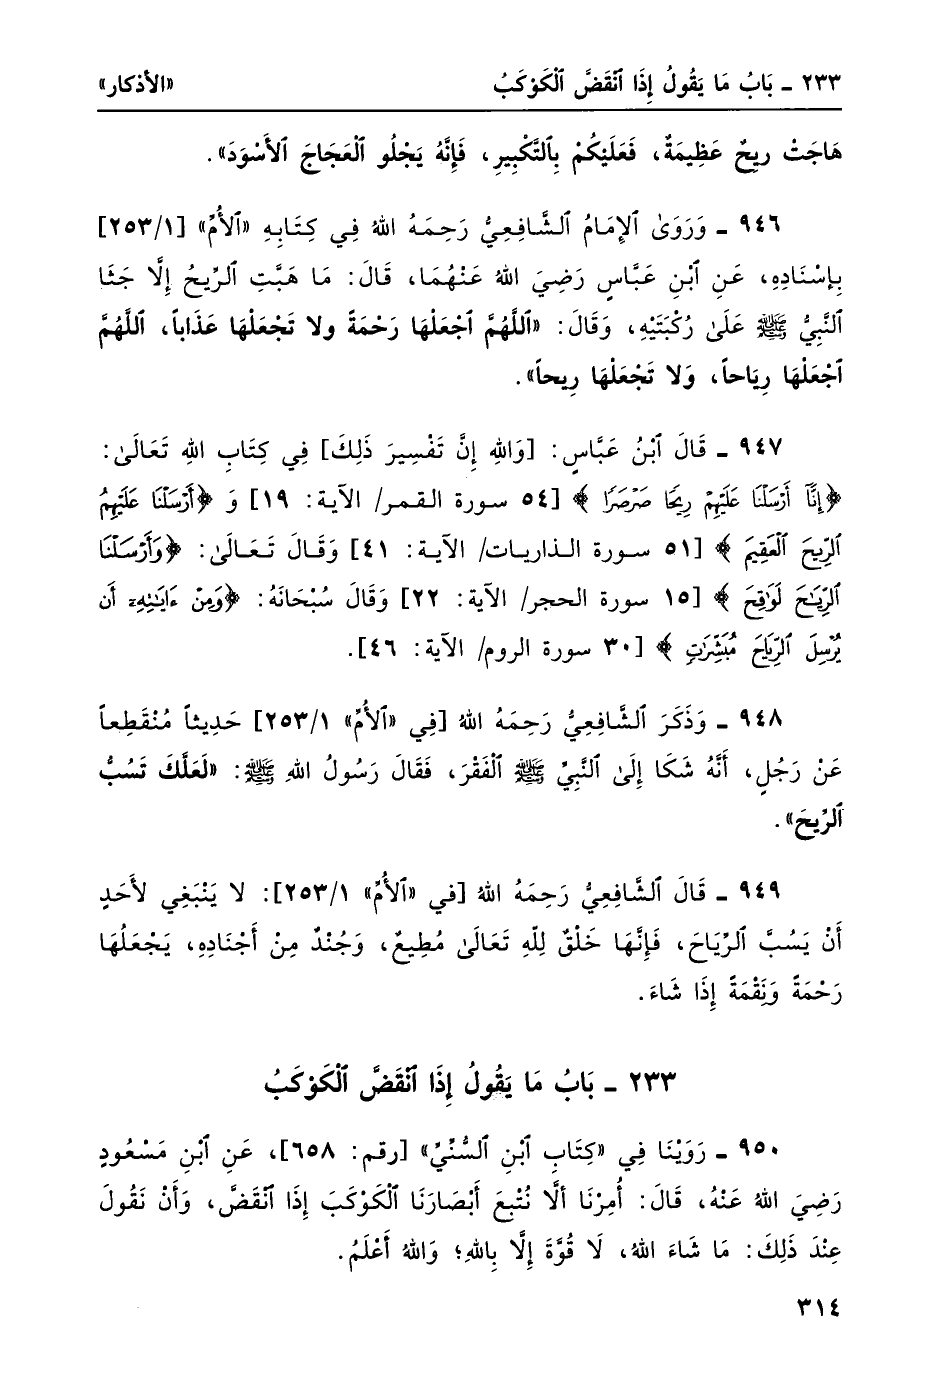 ٢٣٣ ـ بَابُ مَا يَقُولُ إِذَا ٱنْقَضَّ ٱلْكَوْكَبُ «الأذكار»
هَاجَتْ رِيحٌ عَظِيمَةٌ، فَعَلَيْكُمْ بِٱلتَّكْبِيرِ، فَإِنَّهُ يَجْلُو ٱلْعَجَاجَ ٱلأَسْوَدَ».
٩٤٦ ـ وَرَوَىٰ ٱلإِمَامُ ٱلشَّافِعِيُّ رَحِمَهُ اللهُ فِي كِتَابِهِ «ٱلأُمِّ» [٢٥٣/١]
بِإِسْنَادِهِ، عَنِ ٱبْنِ عَبَّاسٍ رَضِيَ اللهُ عَنْهُمَا، قَالَ: مَا هَبَّتِ ٱلرِّيحُ إِلَّا جَثَا
ٱلنَّبِيُّ ﷺ عَلَىٰ رُكْبَتَيْهِ، وَقَالَ: «ٱللَّهُمَّ ٱجْعَلْهَا رَحْمَةً ولا تَجْعَلْهَا عَذَاباً، ٱللَّهُمَّ
ٱجْعَلْهَا رِيَاحاً، وَلا تَجْعَلْهَا رِيحاً».
٩٤٧ ـ قَالَ ٱبْنُ عَبَّاسٍ: [وَاللهِ إِنَّ تَفْسِيرَ ذَلِكَ] فِي كِتَابِ اللهِ تَعَالَىٰ:
﴿إِنَّآ أَرْسَلْنَا عَلَيْهِمْ رِيحًا صَرْصَرًا﴾ [٥٤ سورة القمر/ الآية: ١٩] وَ ﴿أَرْسَلْنَا عَلَيْهِمُ
ٱلرِّيحَ ٱلْعَقِيمَ﴾ [٥١ سورة الذاريات/ الآية: ٤١] وَقَالَ تَعَالَىٰ: ﴿وَأَرْسَلْنَا
ٱلرِّيَٰحَ لَوَٰقِحَ﴾ [١٥ سورة الحجر/ الآية: ٢٢] وَقَالَ سُبْحَانَهُ: ﴿وَمِنْ ءَايَٰتِهِۦٓ أَن
يُرْسِلَ ٱلرِّيَاحَ مُبَشِّرَٰتٍ﴾ [٣٠ سورة الروم/ الآية: ٤٦].
٩٤٨ ـ وَذَكَرَ ٱلشَّافِعِيُّ رَحِمَهُ اللهُ [فِي «ٱلأُمِّ» ٢٥٣/١] حَدِيثاً مُنْقَطِعاً
عَنْ رَجُلٍ، أَنَّهُ شَكَا إِلَىٰ ٱلنَّبِيِّ ﷺ ٱلْفَقْرَ، فَقَالَ رَسُولُ اللهِ ﷺ: «لَعَلَّكَ تَسُبُّ
ٱلرِّيحَ».
٩٤٩ ـ قَالَ ٱلشَّافِعِيُّ رَحِمَهُ اللهُ [في «ٱلأُمِّ» ٢٥٣/١]: لا يَنْبَغِي لأَحَدٍ
أَنْ يَسُبَّ ٱلرِّيَاحَ، فَإِنَّهَا خَلْقٌ لِلّهِ تَعَالَىٰ مُطِيعٌ، وَجُنْدٌ مِنْ أَجْنَادِهِ، يَجْعَلُهَا
رَحْمَةً وَنِقْمَةً إِذَا شَاءَ.
٢٣٣ ـ بَابُ مَا يَقُولُ إِذَا ٱنْقَضَّ ٱلْكَوْكَبُ
٩٥٠ ـ رَوَيْنَا فِي «كِتَابِ ٱبْنِ ٱلسُّنِّيِّ» [رقم: ٦٥٨]، عَنِ ٱبْنِ مَسْعُودٍ
رَضِيَ اللهُ عَنْهُ، قَالَ: أُمِرْنَا أَلَّا نُتْبِعَ أَبْصَارَنَا ٱلْكَوْكَبَ إِذَا ٱنْقَضَّ، وَأَنْ نَقُولَ
عِنْدَ ذَلِكَ: مَا شَاءَ اللهُ، لَا قُوَّةَ إِلَّا بِاللهِ؛ وَاللهُ أَعْلَمُ.
٣١٤